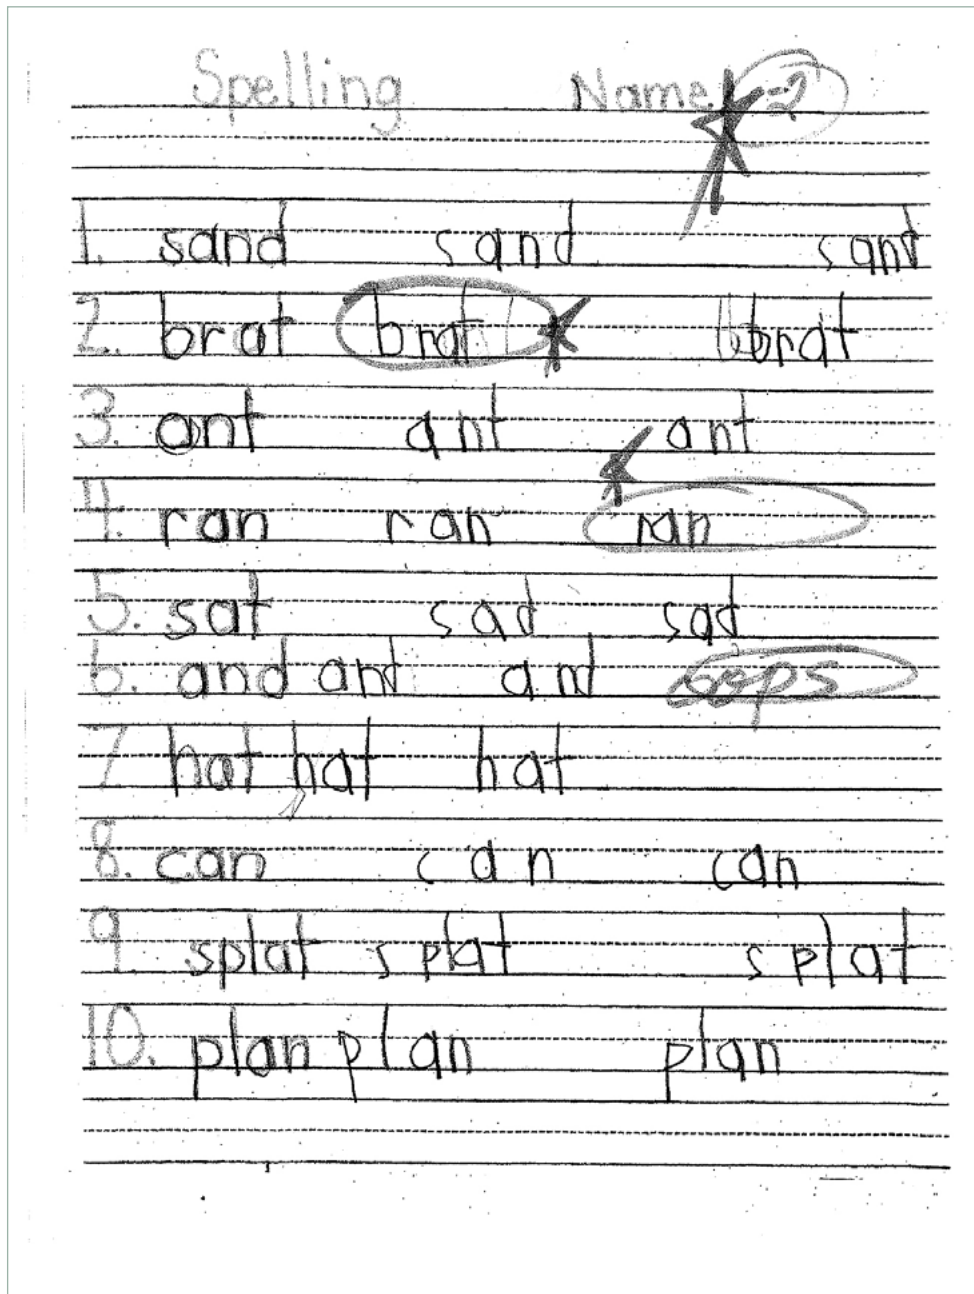 Spelling Name -2
1. sand sand sand
2. brat brat brat
3. ant ant ant
4. ran ran ran
5. sat sad sad
6. and and and oops
7 hat hat hat
8. can can can
9. splat splat splat
10. plan plan plan